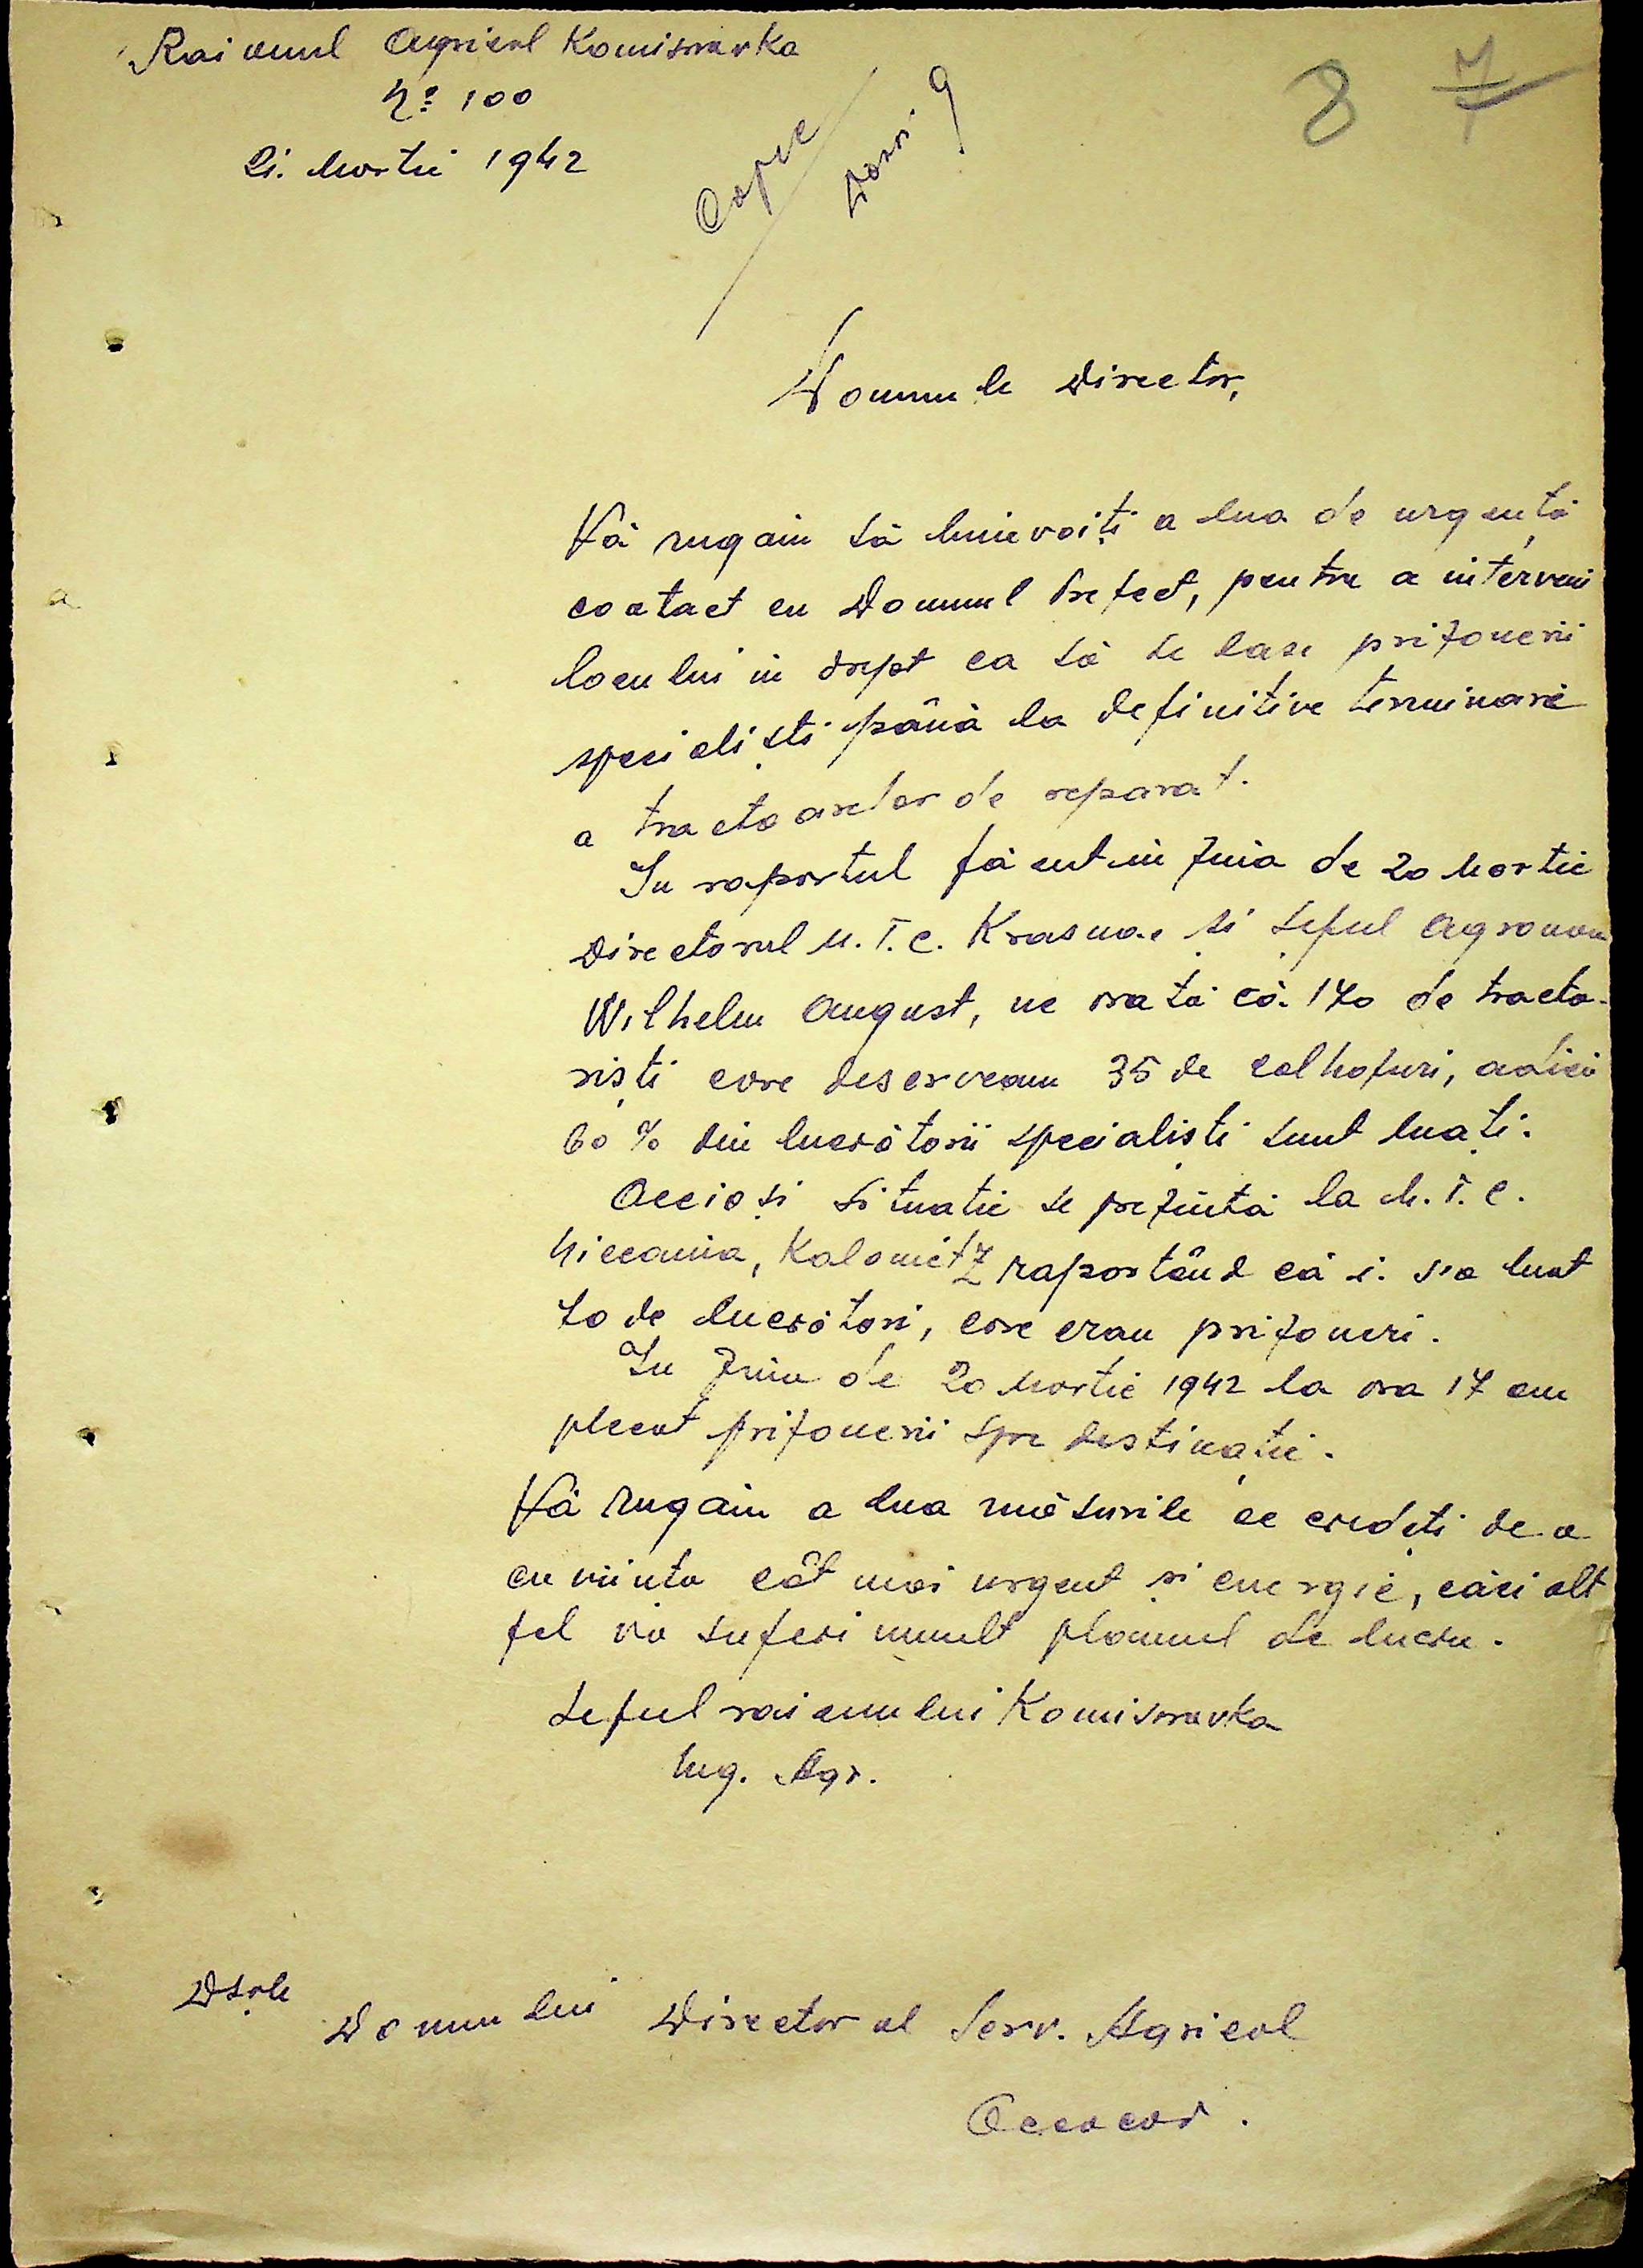 Raionul Agricol Komisarovka
No 100
21. Martie 1942
Copie
Dosar 9
8 7
Domnule Director,
Vă rugăm să binevoiți a lua de urgență
contact cu Domnul Prefect, pentru a interveni
locului în drept ca să se lase prizonerii
specialiști până la definitive terminare
a tractoarelor de reparat.
In raportul făcut în ziua de 20 Martie
Directorul M.T.C. Krasna și șeful Agronom
Wilhelm August, ne arată că 170 de tracto-
riști care deserveau 35 de colhozuri, adică
60 % din lucrătorii specialiști sunt luați.
Aceiași situatie se prezintă la M.T.C.
raportând că i. s'a luat
de lucrători, care erau prizoneri.
In ziua de 20 Martie 1942 la ora 17 au
plecat prizonerii spre destinație.
Vă rugăm a lua măsurile ce credeți de a
cuviinta cât mai urgent și energic, căci alt
fel va suferi mult planul de lucru.
Șeful raionului Komisarovka
Ing. Agr.
Dsale
Domnului Director al Serv. Agricol
Oceacov.